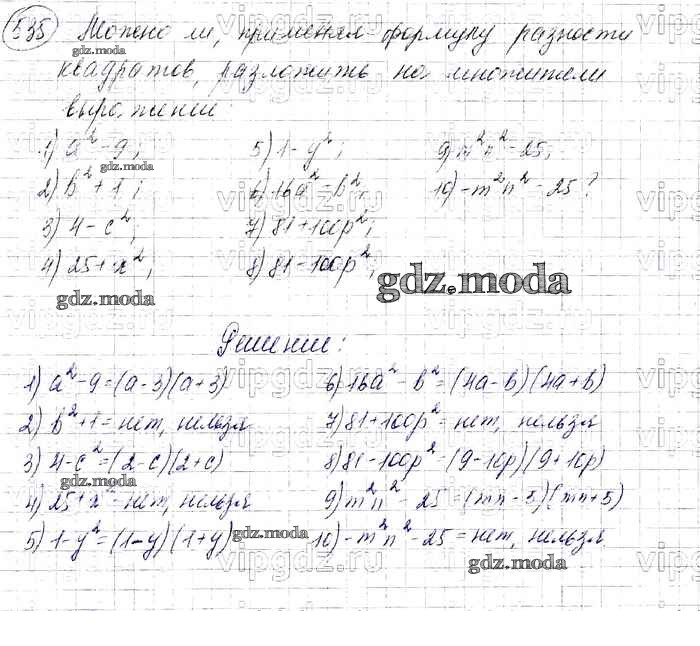 535 Можно ли, применяя формулу разности
квадратов, разложить на множители
выражение:
1) a² - 9;
2) b² + 1;
3) 4 - c²;
4) 25 + x²;
5) 1 - y²;
6) 16a² - b²;
7) 81 + 100p²;
8) 81 - 100p²;
9) m²n² - 25;
10) -m²n² - 25?
Решение:
1) a² - 9 = (a - 3)(a + 3)
2) b² + 1 = нет, нельзя
3) 4 - c² = (2 - c)(2 + c)
4) 25 + x² - нет, нельзя
5) 1 - y² = (1 - y)(1 + y)
6) 16a² - b² = (4a - b)(4a + b)
7) 81 + 100p² = нет, нельзя
8) 81 - 100p² = (9 - 10p)(9 + 10p)
9) m²n² - 25 = (mn - 5)(mn + 5)
10) -m²n² - 25 = нет, нельзя
gdz.moda
gdz.moda
gdz.moda
gdz.moda
gdz.moda
gdz.moda
gdz.moda
vipgdz.ru